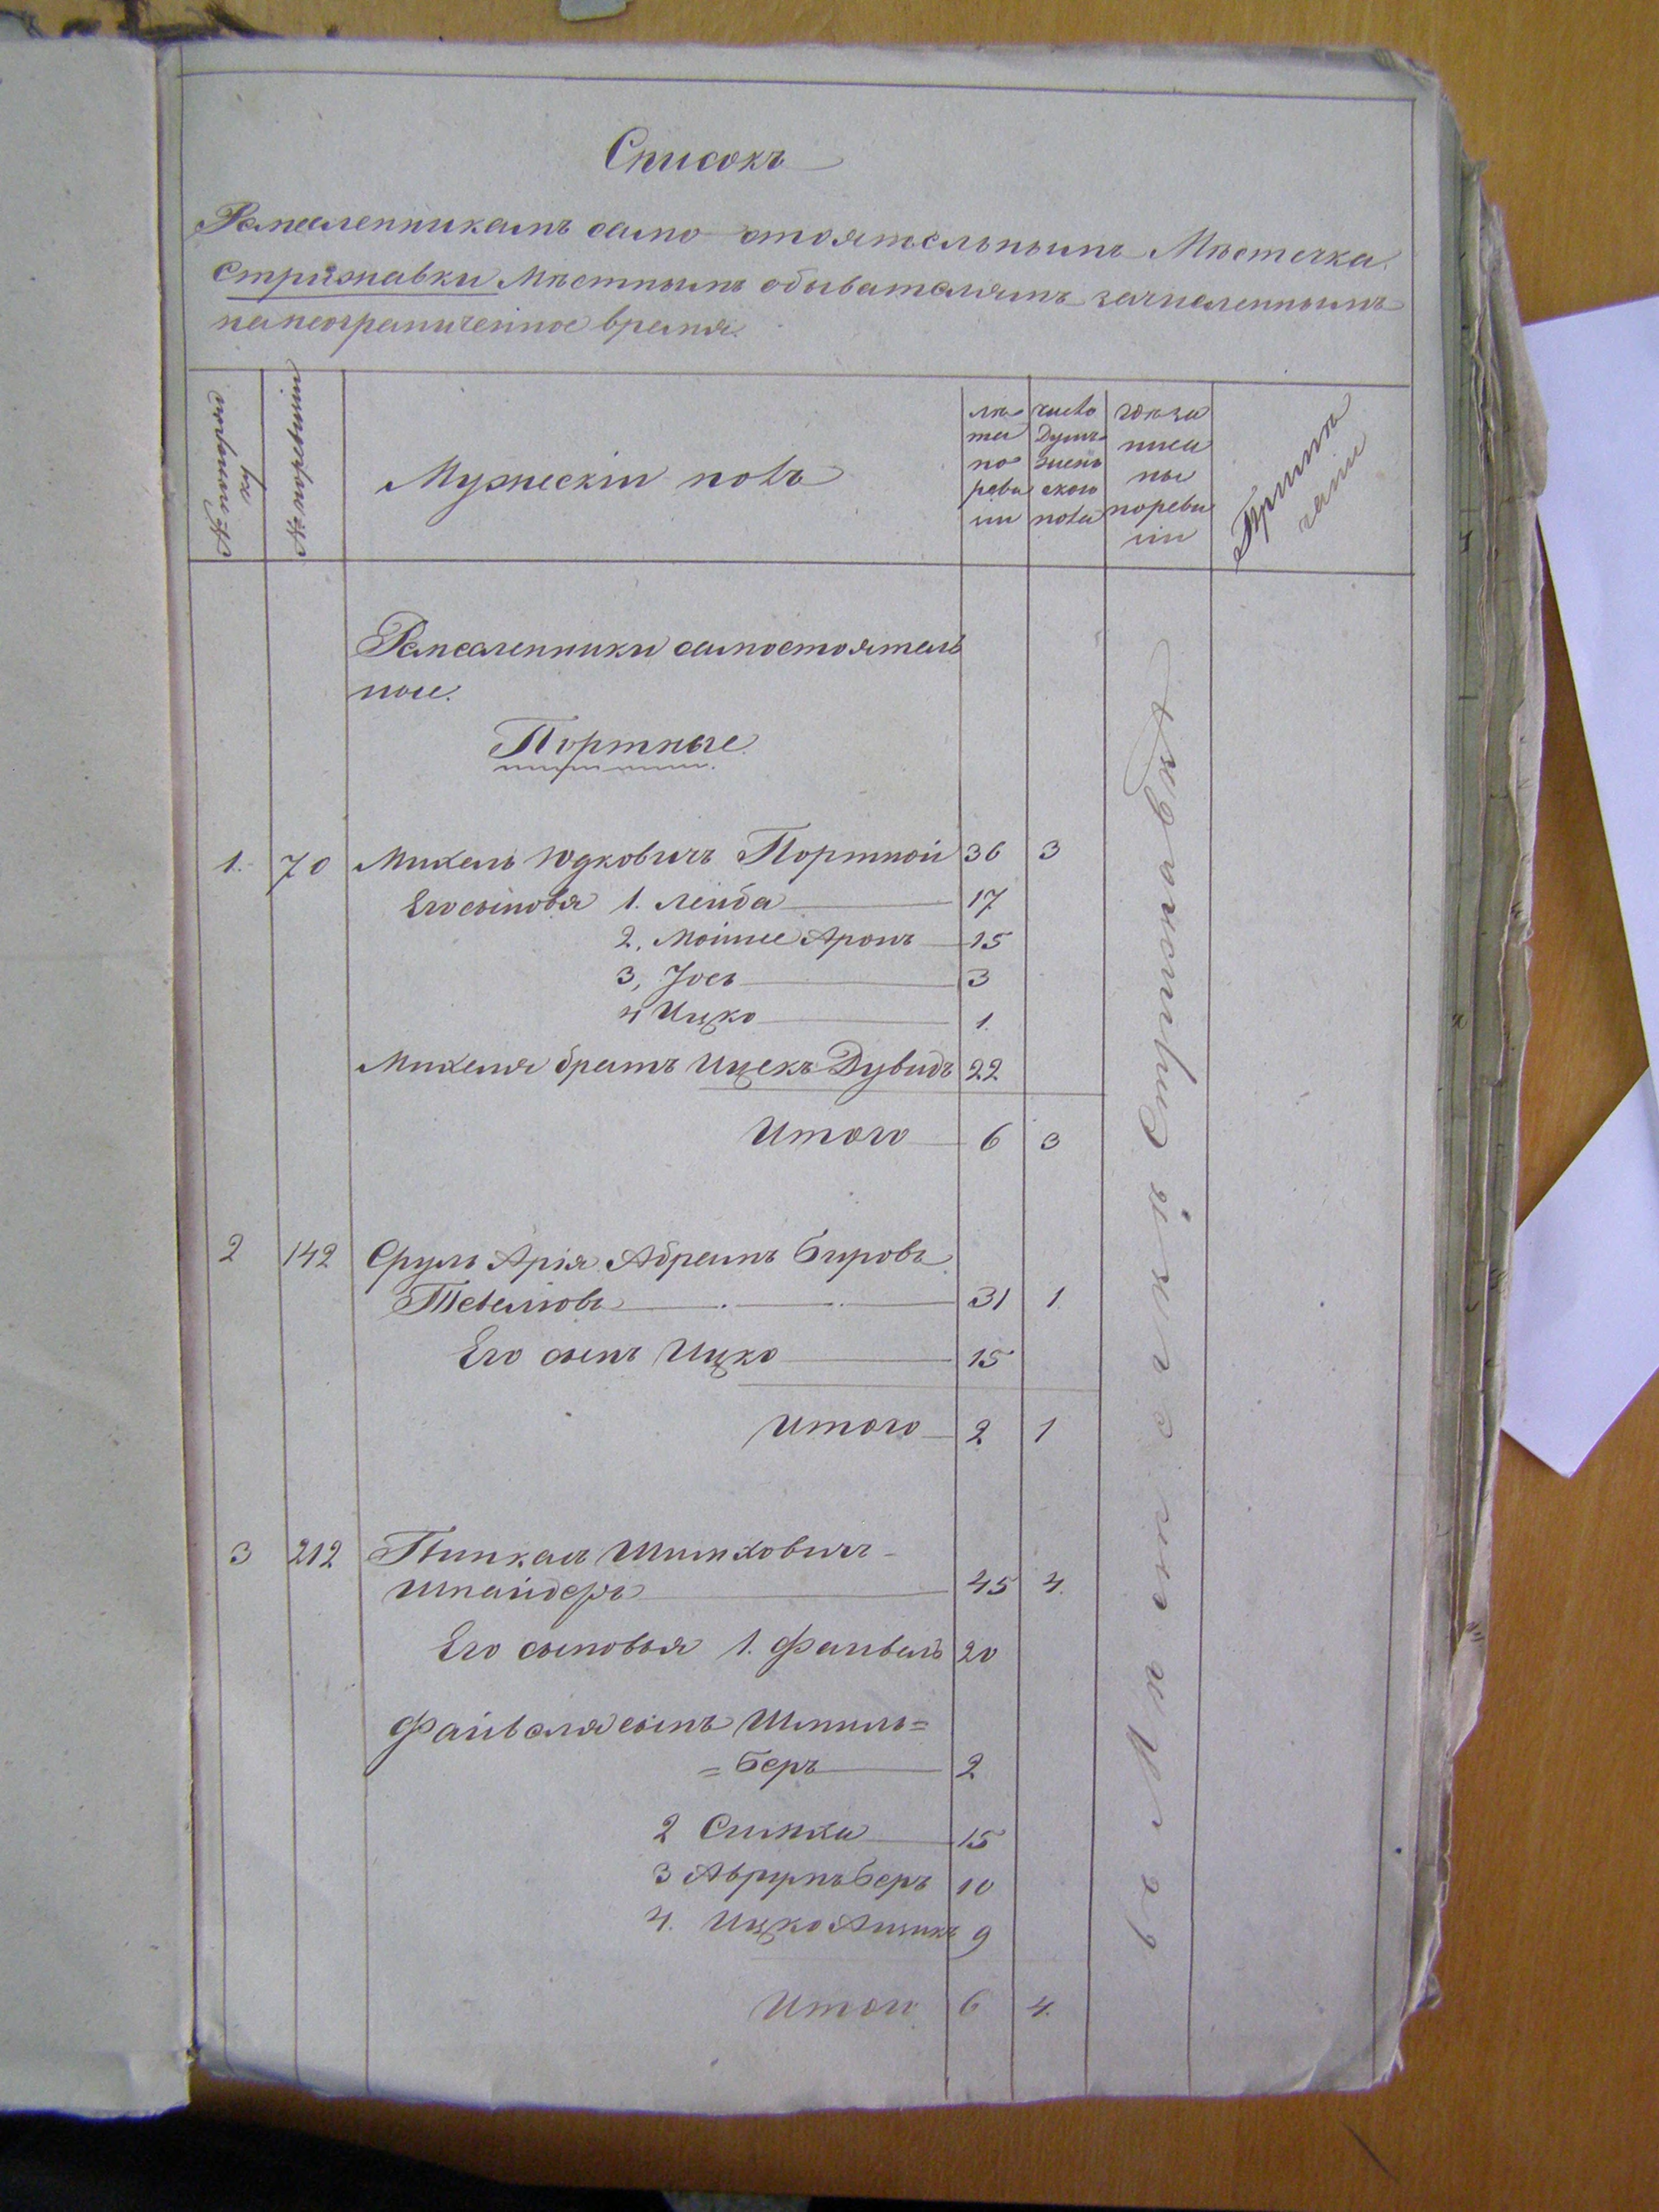 Списокъ
Ремесленникамъ само стоятельнымъ Мѣстечка
Стрижавки Мѣстнымъ обывателямъ зачисленнымъ
на неограниченное время.
№ по порядку
№ по ревизіи
Мужескій полъ
лѣ та по реви зіи
число Душъ женъ ского пола
гдѣ за писа ны по реви зіи
Примѣ чаніи
Ремесленники самостоятель
ные.
Портные.
1. 70 Михель Юдковичъ Портной 36 3
Его сыновья 1. Лейба 17
2. Мойше Аронъ 15
3, Іосъ 3
4 Ицко 1.
Михеля братъ Ицекъ Дувидъ 22
Итого 6 3
2 142 Сруль Арія Абрамъ Бировъ
Тевелювъ 31 1.
Его сынъ Ицко 15
Итого 2 1
3 212 Пинкасъ Шимховичъ
Шнайдеръ 45 4.
Его сыновья 1. Файвель 20
Файвеля сынъ Шмиль=
=Беръ 2
2 Симха 15
3 Аврумъ Беръ 10
4. Ицко 9
Итого 6 4.
въ Мѣстечкѣ Стрижавкѣ